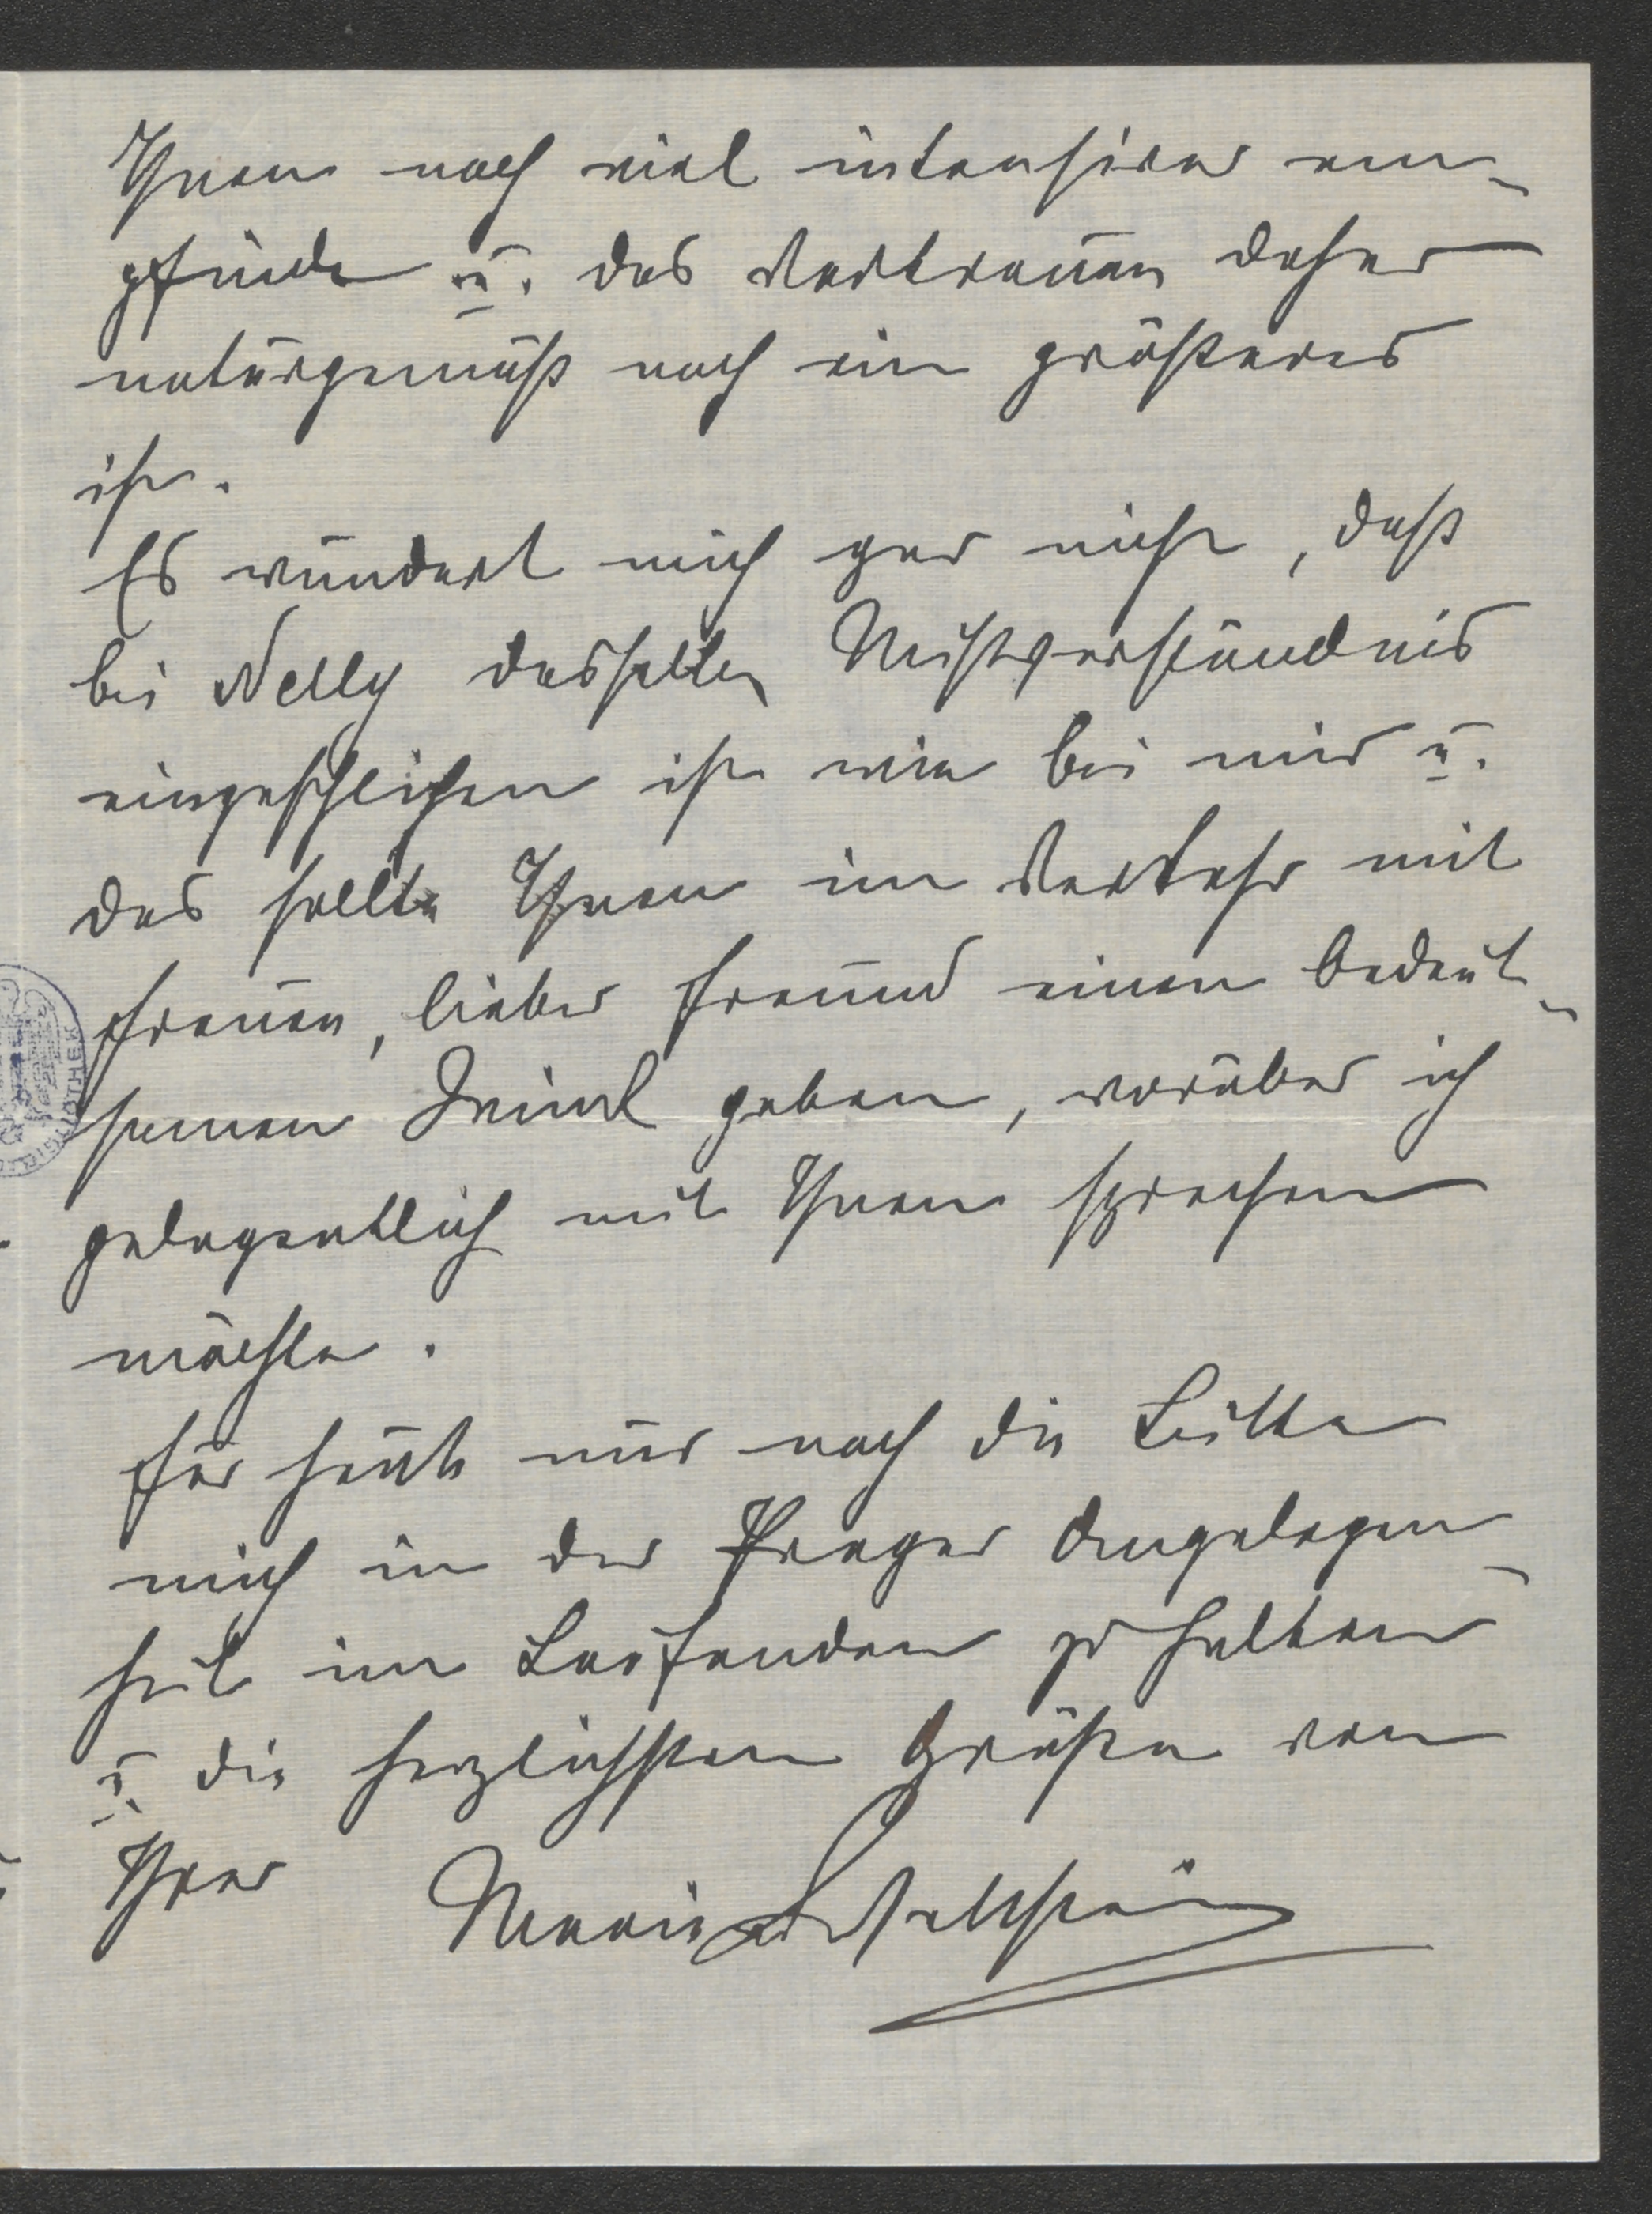 Ihnen noch viel intensiver em-
pfinde u. das Vertrauen daher
naturgemäß noch ein größeres
ist.
Es wundert mich gar nicht, daß
bei Nelly dasselbe Mißverständnis
eingeschlichen ist wie bei mir u.
das sollte Ihnen im Verkehr mit
Frauen, lieber Freund einen bedeut-
samen Wink geben, worüber ich
gelegentlich mit Ihnen sprechen
möchte.
Für heute nur noch die Bitte
mich in der Prager Angelegen-
heit im Laufenden zu halten
u. die herzlichsten Grüße von
Ihrer Maria
BIBLIOTHEK